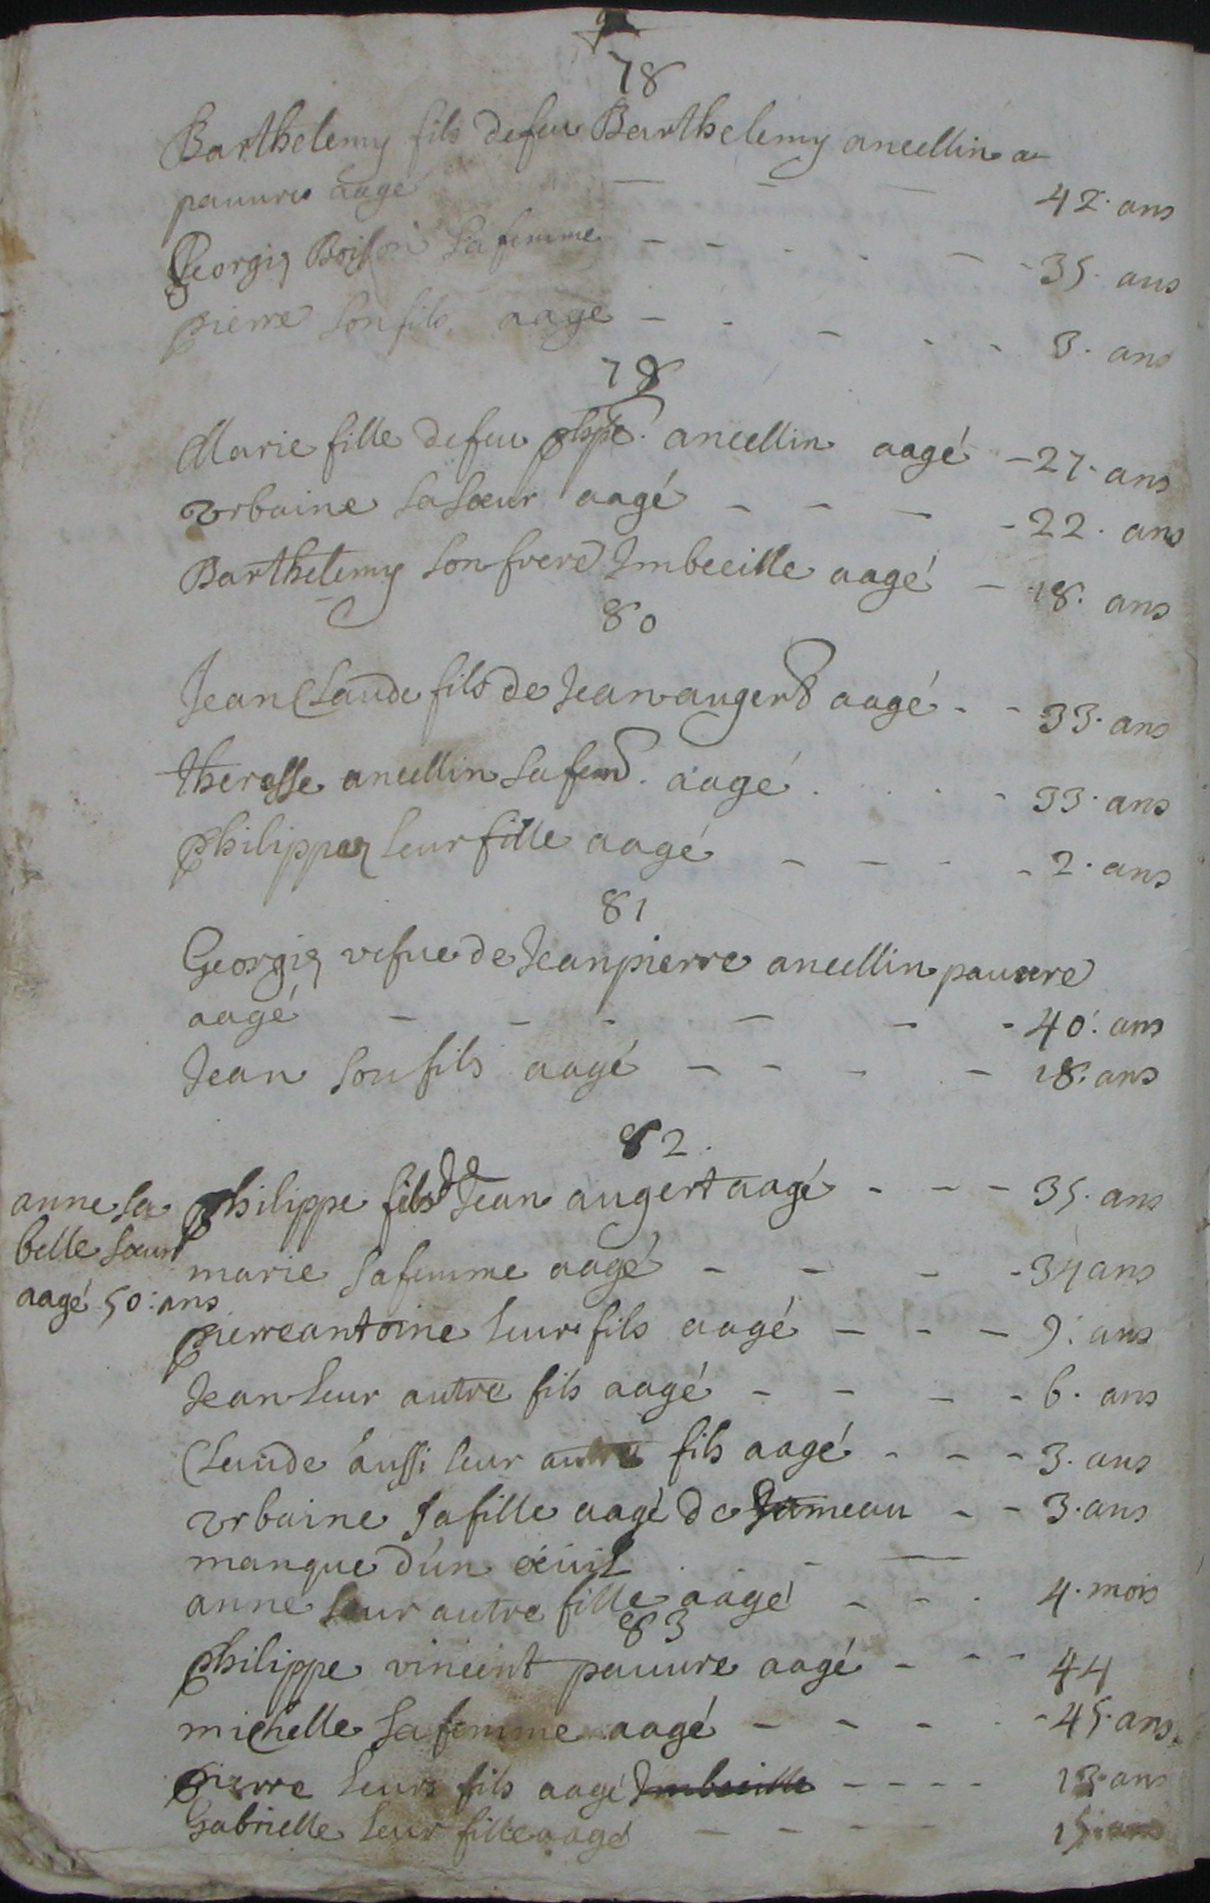 78
Barthelemy fils de feu Barthelemy ancellin a
pauures aagé 42. ans
Georgiȝ Boisson sa femme 35. ans
pierre son fils aage 3. ans
79
Marie fille de feu phpe. ancellin aagé 27. ans
vrbaine sa sœur aagé 22. ans
Barthelemy son frere Imbecille aagé 18. ans
80
Jean Claude fils de Jean augerd aagé 33. ans
therasse ancellin sa fem. aagé 33. ans
philippaȝ leur fille aagé 2. ans
81
Georgiȝ vefue de Jean pierre ancellin pauure
aagé 40. ans
Jean son fils aagé 18. ans
82.
anne sa
belle sœur
aagé 50: ans
philippe fils de Jean augert aagé 35. ans
marie sa femme aagé 34 ans
pierre antoine leur fils aagé 9. ans
Jean leur autre fils aagé 6. ans
Claude aussi leur autre fils aagé 3. ans
vrbaine sa fille aagé de Jumeau 3. ans
manque d'un
anne leur autre fille aagé 4. mois
83
philippe vincent pauure aagé 44
michelle sa femme aagé 45. ans
pierre leurs fils aagé Imbecille 13. ans
Gabrielle leur fille aagé 15. ans